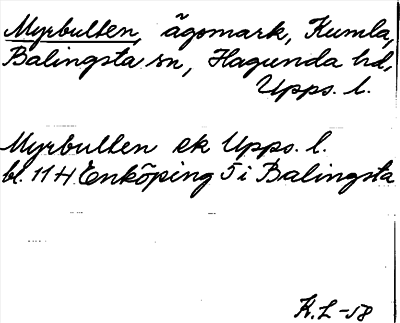 Myrbulten, ägomark, Kumla,
Balingsta sn, Hagunda hd,
Upps. l.
Myrbulten ek Upps. l.
bl. 11 H Enköping 5 i Balingsta
K.L -58